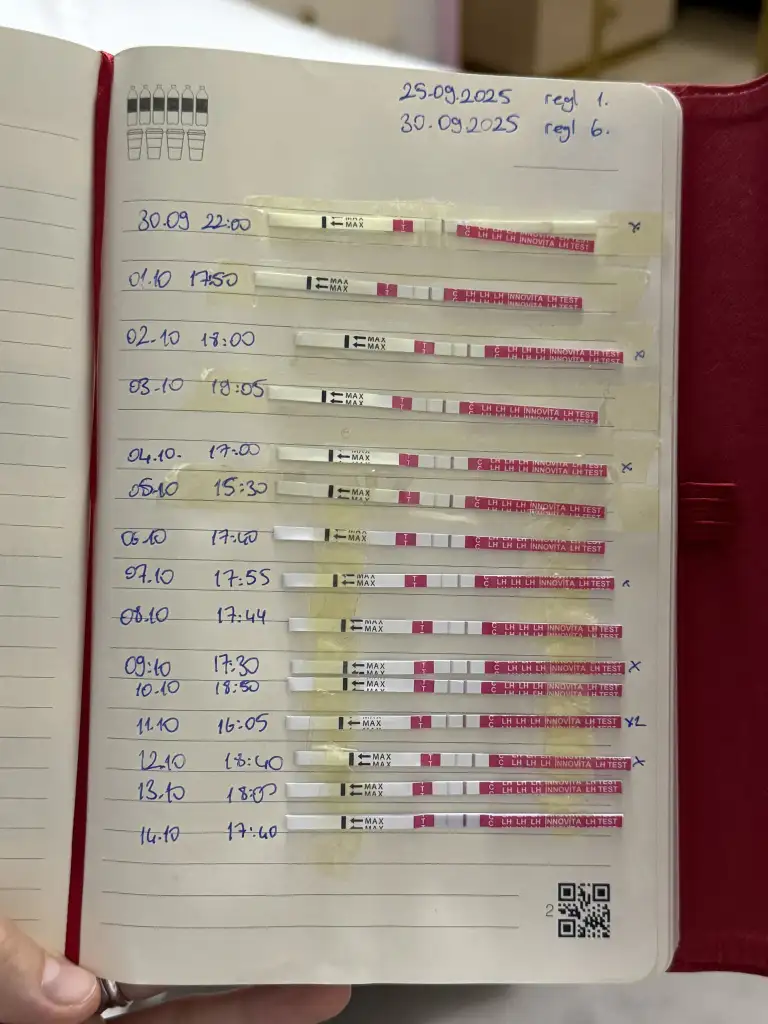 25.09.2025 regl 1.
30.09.2025 regl 6.
30.09 22:00 MAX T C LH LH LH INNOVITA LH TEST x
01.10 17:50 MAX MAX T T C C LH LH LH INNOVITA LH TEST
02.10 18:00 MAX MAX T T C LH LH LH INNOVITA LH TEST x
03.10 19:05 MAX MAX T T C LH LH LH INNOVITA LH TEST
04.10. 17:00 MAX T T C LH LH LH INNOVITA LH TEST x
05.10 15:30 MAX MAX T T C LH LH LH INNOVITA LH TEST
06.10 17:40 MAX MAX T T C LH LH LH INNOVITA LH TEST
07.10 17:55 MAX MAX T T C LH LH LH INNOVITA LH TEST
08.10 17:44 MAX MAX T T C LH LH LH INNOVITA LH TEST
09.10 17:30 MAX MAX T T C LH LH LH INNOVITA LH TEST x
10.10 18:50 MAX MAX T T C LH LH LH INNOVITA LH TEST
11.10 16:05 MAX T T C LH LH LH INNOVITA LH TEST
12.10 18:40 MAX MAX T T C LH LH LH INNOVITA LH TEST x
13.10 18:00 MAX MAX T T C LH LH LH INNOVITA LH TEST
14.10 17:40 MAX MAX T T C LH LH LH INNOVITA LH TEST
2